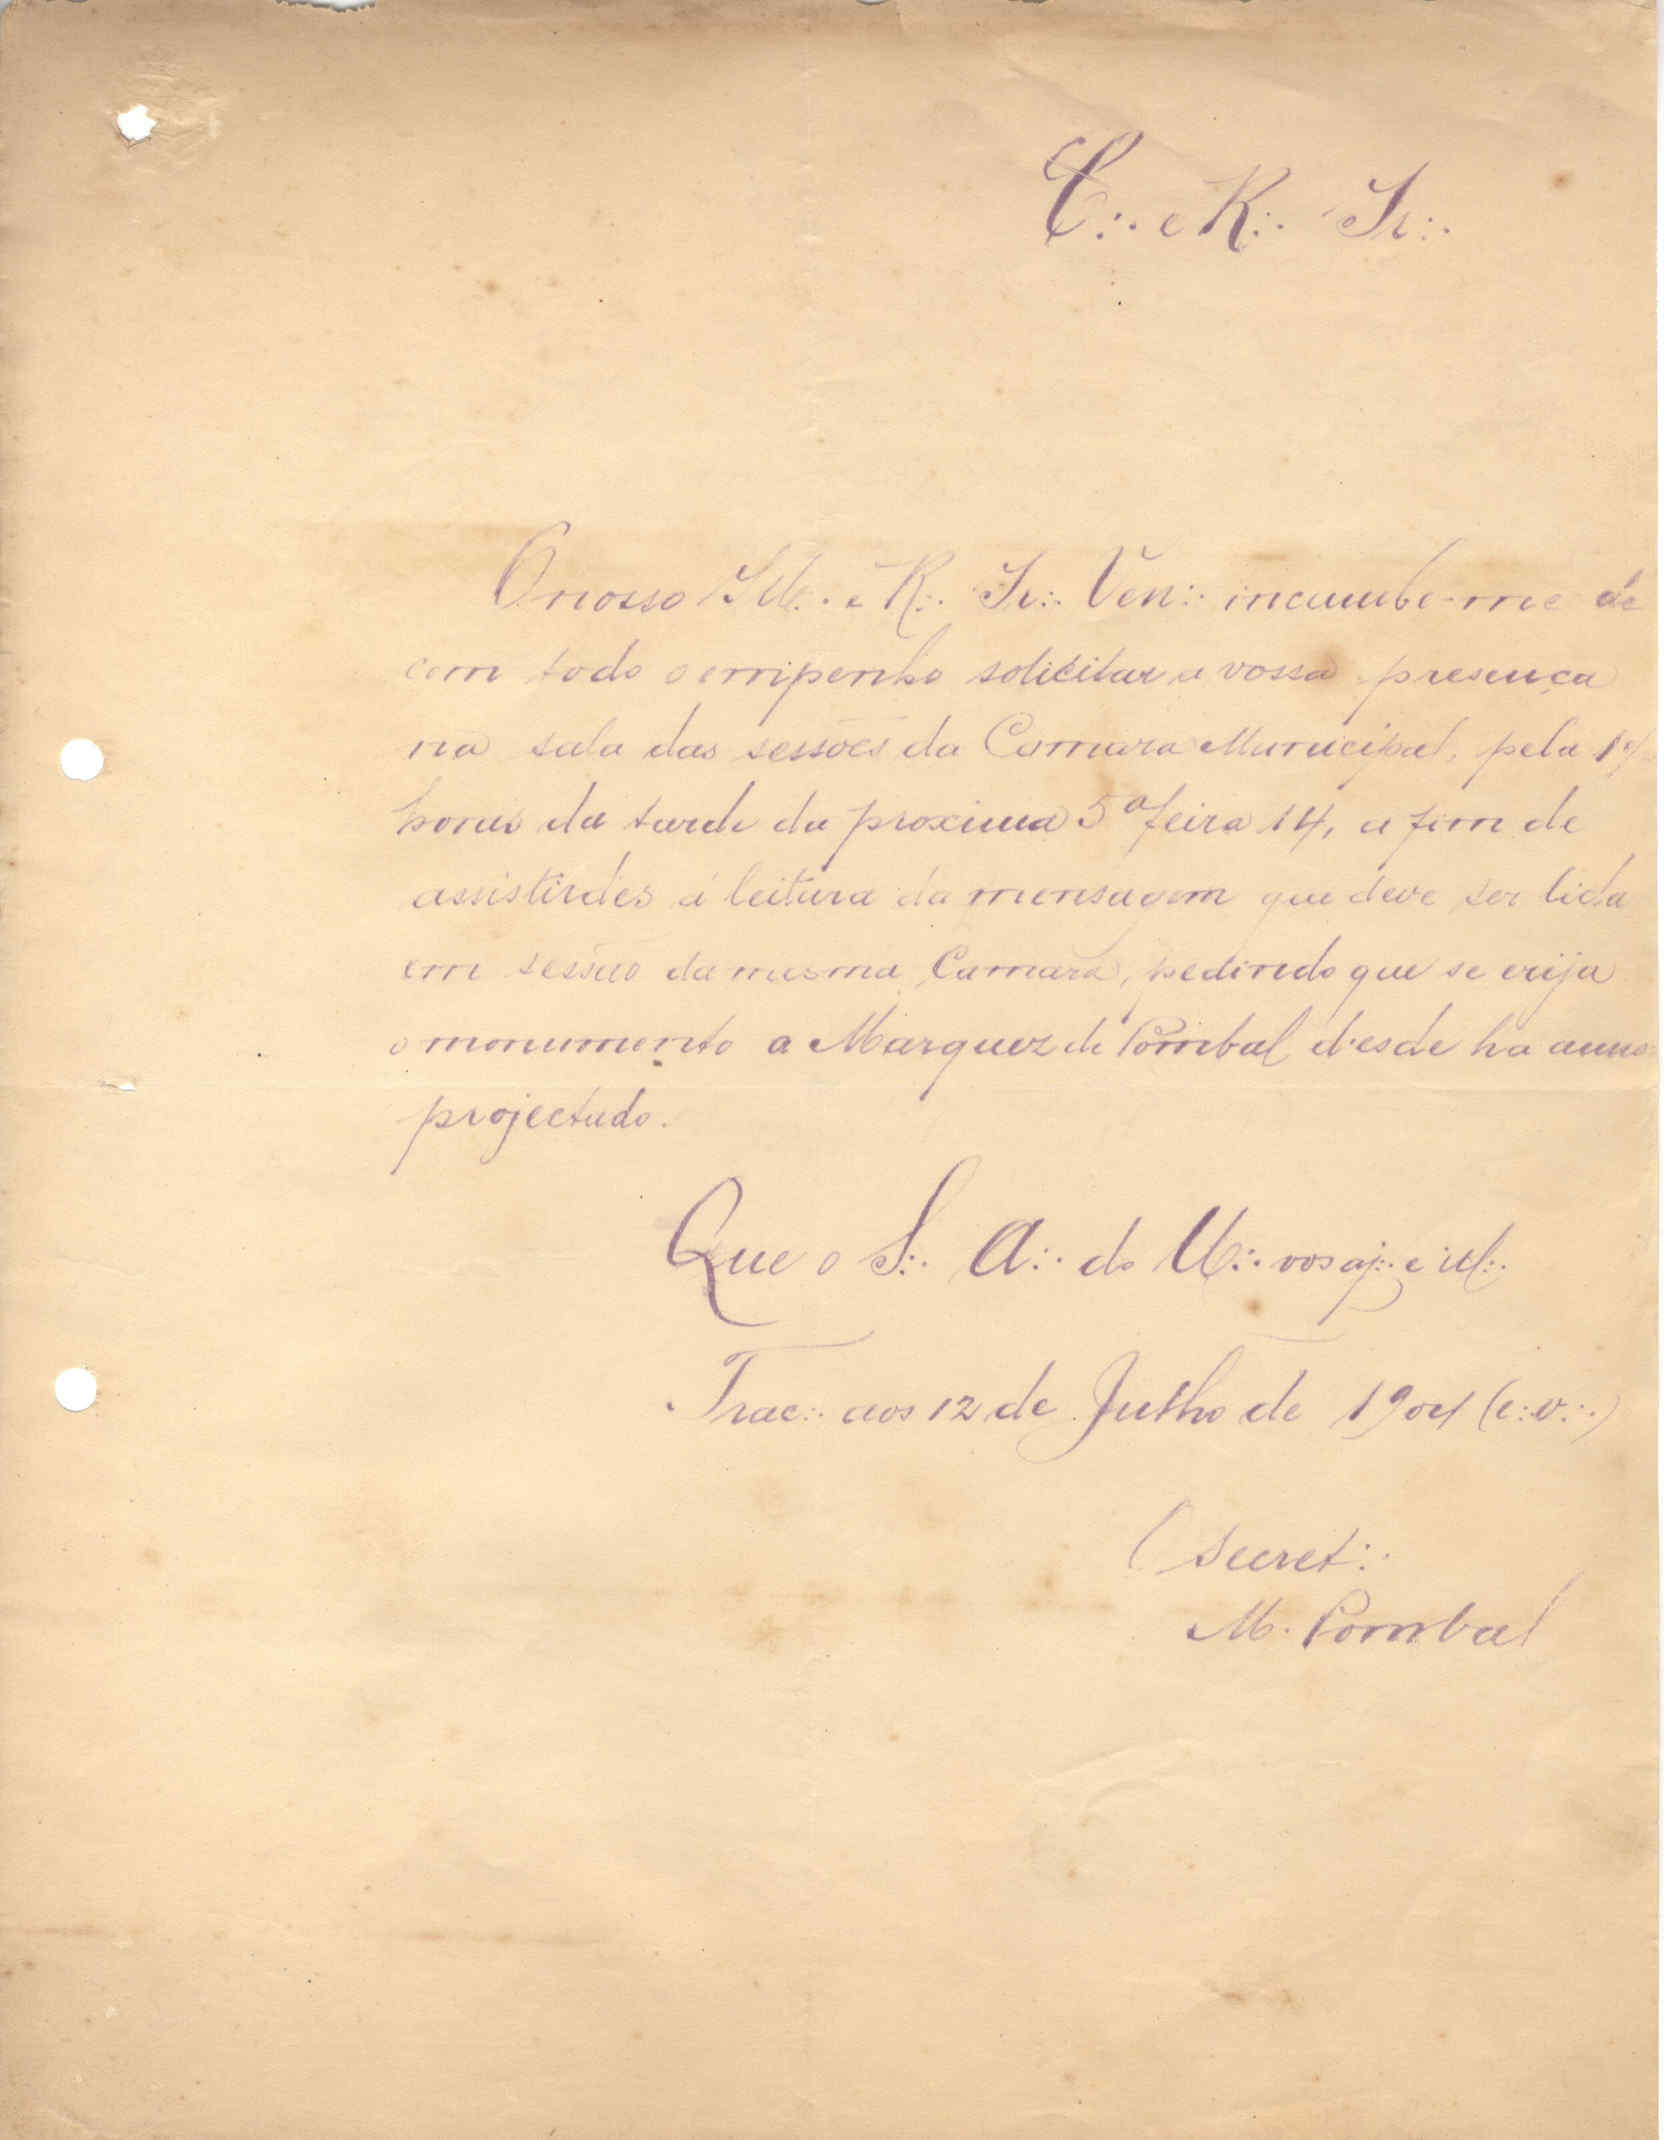 C∴ e R∴ Ir∴
O nosso Ill∴ e R∴ Ir∴ Ven∴ incumbe-me de
com todo o empenho solicitar a vossa presença
na sala das sessões da Camara Municipal, pela 1
horas da tarde da proxima 5ª feira 14, a fim de
assistirdes á leitura da mensagem que deve ser lida
em sessão da mesma Camara, pedindo que se erija
o monumento a Marquez de Pombal desde ha annos
projectado.
Que o S∴ A∴ do U∴ vos aj∴ e ill∴
Trac∴ aos 12 de Julho de 1904 (e∴v∴)
O Secret∴
M. Pombal